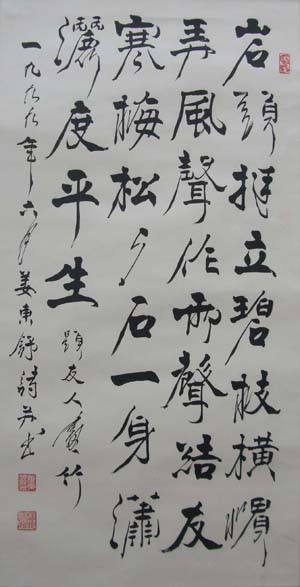 岩頭挺立碧枝橫慣
弄風聲作雨聲結友
寒梅松与石一身瀟
灑度平生
題友人畫竹
一九九九年六月姜東舒詩并书